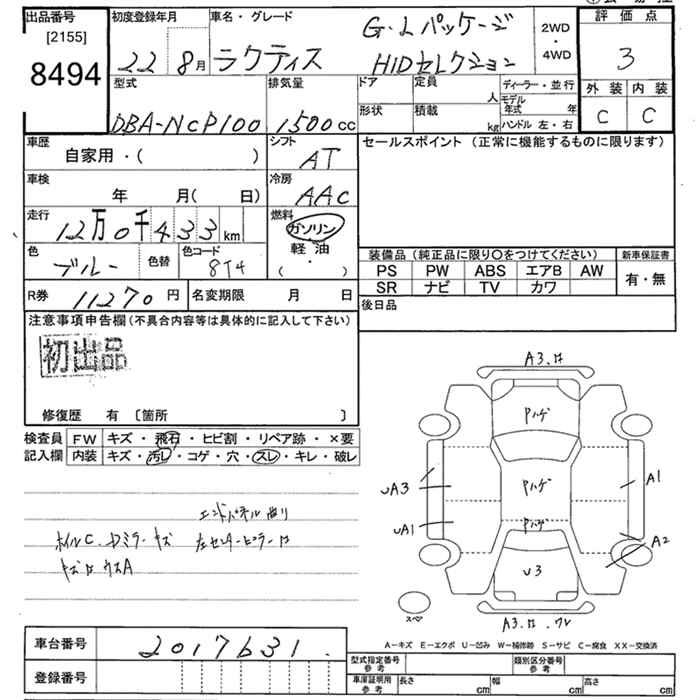 出品番号
[2155]
8494
初度登録年月
22 8月
車名・グレード
ラクティス
G・Lパッケージ
HIDセレクション
2WD
・
4WD
評価点
3
外装 内装
C C
型式
DBA-NCP100
排気量
1500cc
ドア
形状
定員
人
積載
kg
ディーラー・並行
モデル年式 年
ハンドル 左・右
車歴
自家用・( )
シフト
AT
車検
年 月( 日)
冷房
AAC
走行
12万0千433km
燃料
ガソリン
軽油
・( )
色
ブルー
色替
色コード
8T4
R券
11270円
名変期限 月 日
セールスポイント(正常に機能するものに限ります)
装備品(純正品に限り〇をつけてください)
PS PW ABS エアB AW
SR ナビ TV カワ
新車保証書
有・無
後日品
注意事項申告欄(不具合内容等は具体的に記入して下さい)
初出品
修復歴 有 〔箇所 〕
検査員記入欄
FW キズ・飛石・ヒビ割・リペア跡・×要
内装 キズ・汚レ・コゲ・穴・スレ・キレ・破レ
エンドパネル曲り
ホイルC Dミラーキズ 左センターピラーロ
A3.ロ
Pハゲ
Pハゲ
Pハゲ
UA3
UA1
A1
A2
U3
スペア
A3.ロ.ワレ
A-キズ E-エクボ U-凹み W-補修跡 S-サビ C-腐食 XX-交換済
車台番号
2017631
登録番号
型式指定番号
参考
類別区分番号
参考
車庫証明用
参考
長さ cm 幅 cm 高さ cm